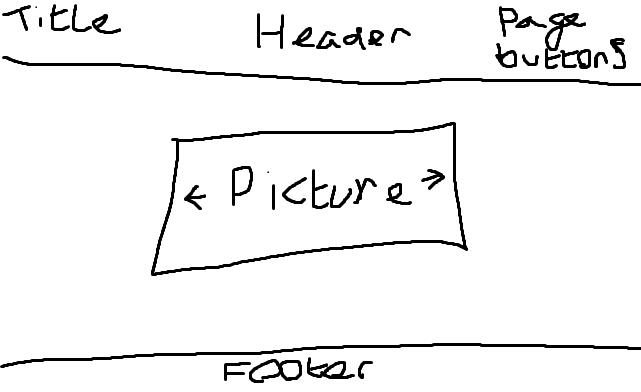 Title
Header
Page
buttons
← Picture →
Footer